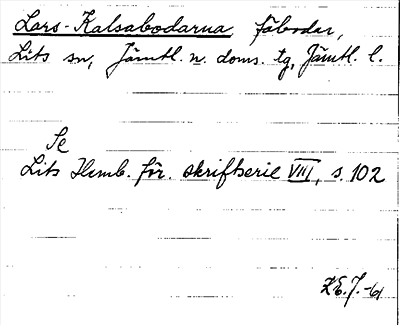 Lars-Kalsabodarna fäbodar,
Lits sn, Jämtl. n. doms. tg, Jämtl. l.
Se
Lits Hemb. för. skriftserie VIII, s. 102
E. J. -61